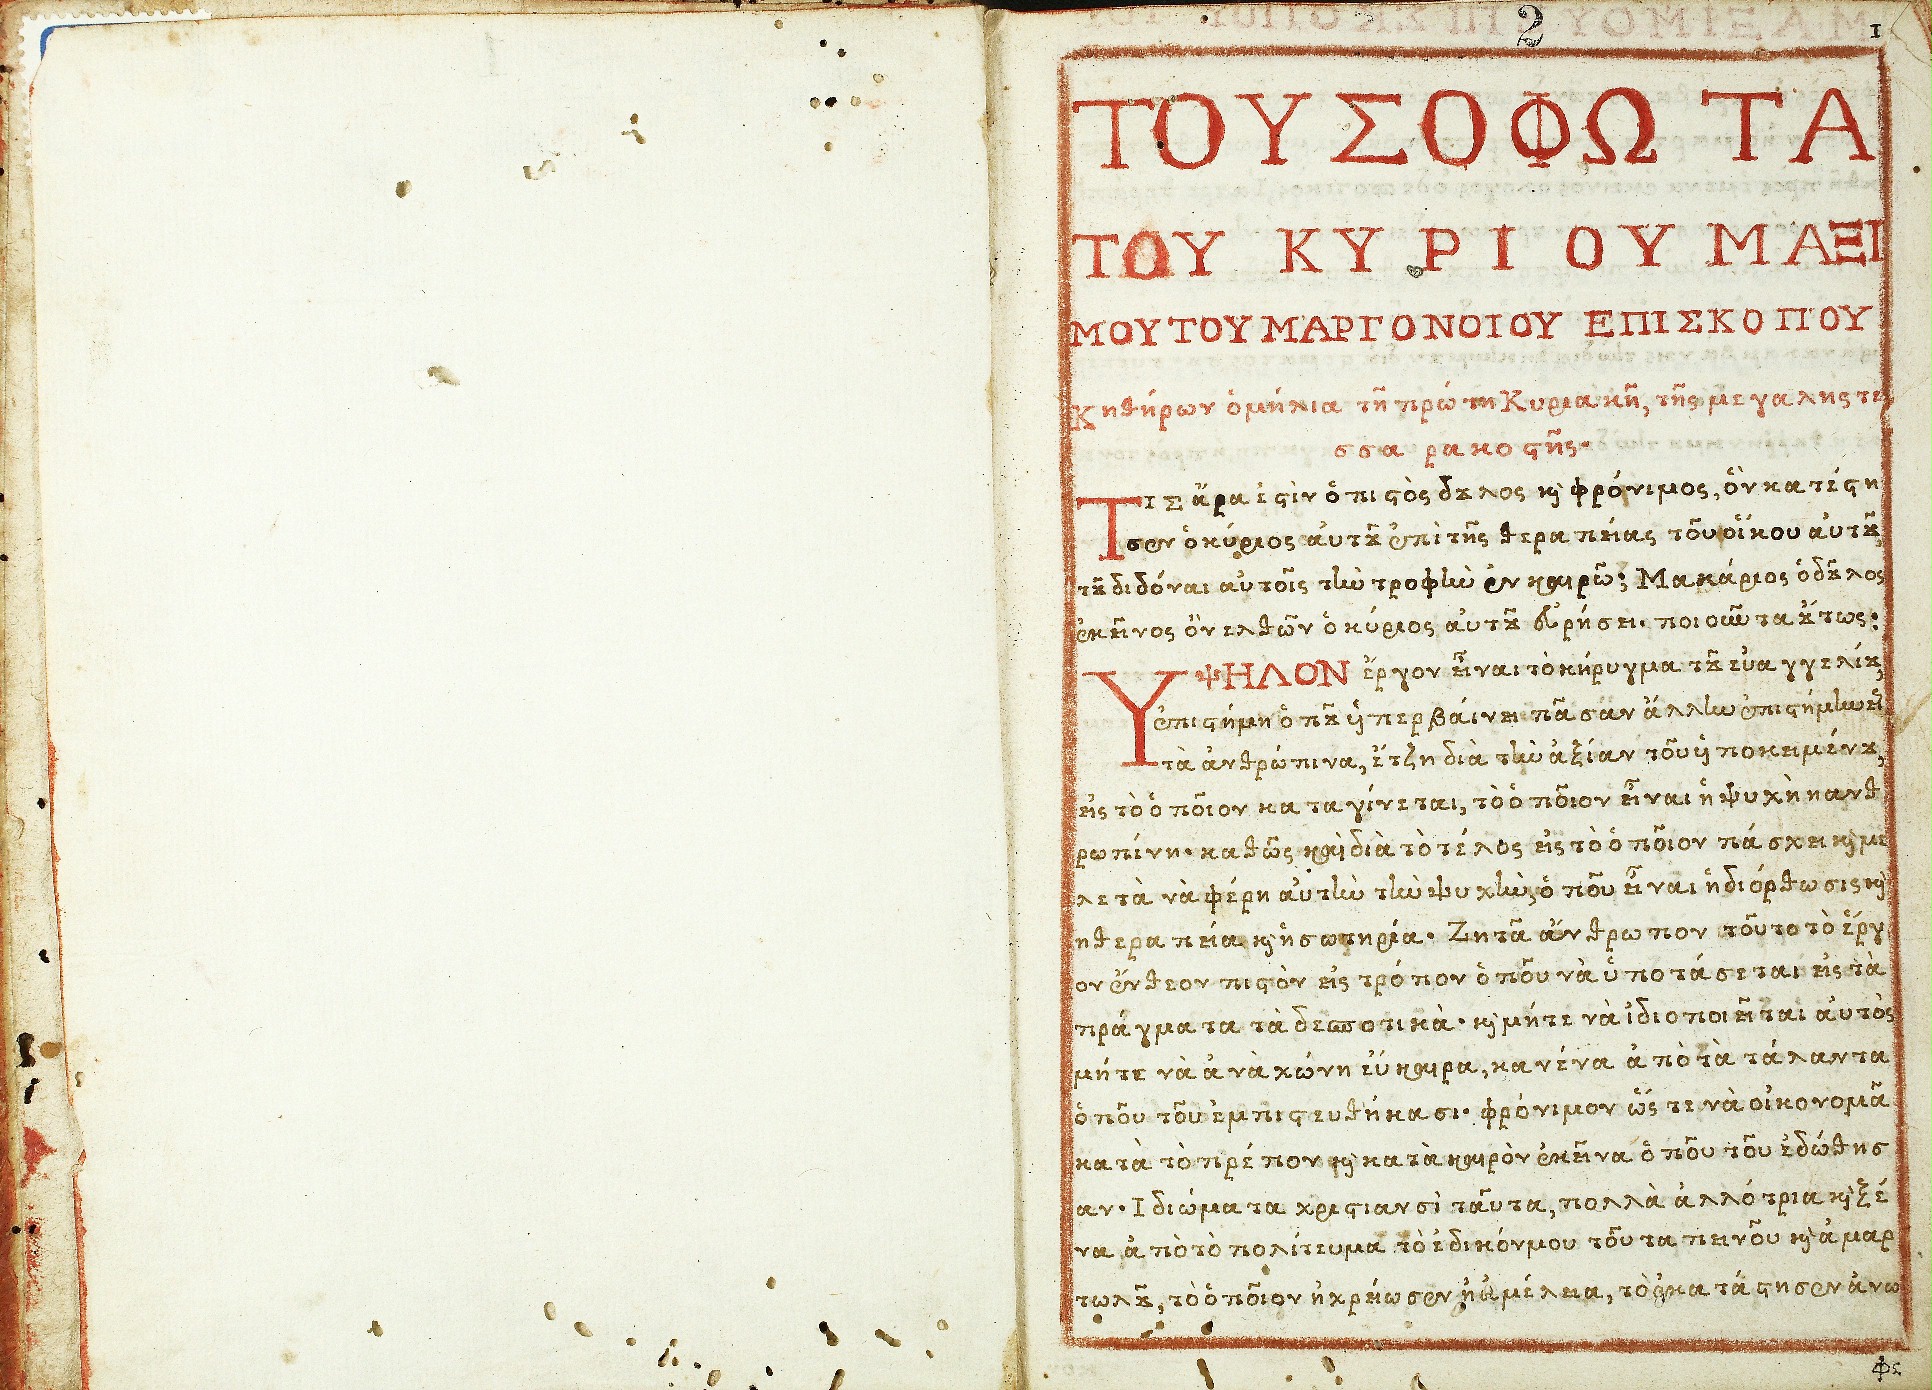 2
1
ΤΟΥ ΣΟΦΩΤΑ
ΤΟΥ ΚΥΡΙΟΥ ΜΑΞΙ
ΜΟΥ ΤΟΥ ΜΑΡΓΟΝΟΙΟΥ ΕΠΙΣΚΟΠΟΥ
Κηθήρων ὁμήλια τῆ πρώτη Κυριακῆ, τῆς μεγαλης τε
σσαρακοςῆς·
ΤΙΣ ἄρα ἐςὶν ὁ πιςὸς δȣλος κὶ φρόνιμος, ὃν κατέςη
σεν ὁ κύριος ἀυτȣ͂ ἐπὶ τῆς θεραπείας τοῦ οἴκου ἀυτȣ͂,
τȣ͂ διδόναι αὐτοῖς τὴν τροφὴν ἐν καιρῶ; Μακάριος ὁ δȣ͂λος
ἐκεῖνος ὃν ελθὼν ὁ κύριος ἀυτȣ͂ εὑρήσει· ποιοῦντα ȣ̓́τως·
ΥΨΗΛΟΝ ἔργον εἶναι τὸ κήρυγμα τȣ͂ εὐαγγελίȣ,
ἐπιςήμη ὁπȣ͂ ὑπερβάινει πᾶσαν ἄλλην ἐπιςήμην εἰ
τὰ ἀνθρώπινα, ἔτζη διὰ τὴν ἀξίαν τοῦ ὑποκειμένȣ,
εἰς τὸ ὁποῖον καταγίνεται, τὸ ὁποῖον εἶναι ἡ ψυχὴ η ανθ
ρωπίνη· καθῶς καὶ διὰ τὸ τέλος εἰς τὸ ὁποῖον πάσχει κὶ με
λετὰ νὰ φέρη αὐτὴν τὴν ψυχὴν, ὁποῦ εἶναι ἡ διόρθωσις κὶ
η θεραπεία κὶ ἡ σωτηρία· Ζητᾶ ἄνθρωπον τοῦτο τὸ ἔργ
ον ἔνθεον πιςὸν εἰς τρόπον ὁποῦ νὰ ὑποτάσεται εἰς τὰ
πράγματα τὰ δεσποτικὰ· κὶ μήτε νὰ ἰδιοποιεῖται ἀυτὸς
μήτε νὰ ἀναχώνη εὔκαιρα, κανένα ἀπὸ τὰ τάλαντα
ὁποῦ τοῦ ἐμπιςευθήκασι· φρόνιμον ὥςτε νὰ οἰκονομᾶ
κατὰ τὸ πρέπον κὶ κατὰ καιρὸν ἐκεῖνα ὁποῦ τοῦ ἐδώθησ
αν· Ιδιώματα χριςιανοὶ ταῦτα, πολλὰ ἀλλότρια κὶ ξέ
να ἀπὸ τὸ πολίτευμα τὸ ἐδικόνμου τοῦ ταπεινοῦ κὶ ἁμαρ
τωλȣ͂, τὸ ὁποῖον ἠχρείωσεν ἡ ἀμέλεια, τὸ ἐκατάςησεν ἀνω
φε